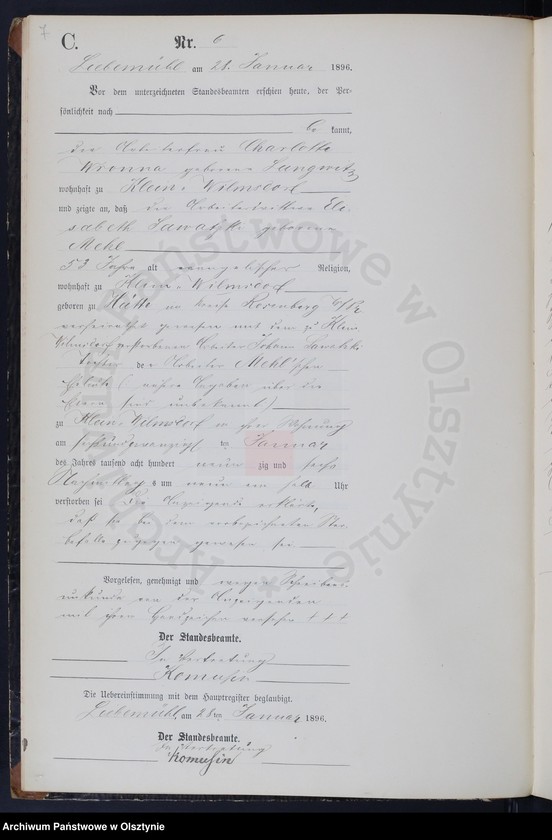 7
C.
Nr. 6
Liebemühl am 28. Januar 1896.
Vor dem unterzeichneten Standesbeamten erschien heute, der Per-
sönlichkeit nach
be kannt,
die Arbeiterfrau Charlotte
geborene
wohnhaft zu Klein Wilmsdorf
und zeigte an, daß die Arbeiterwittwe Eli-
sabeth Sawatzki geborene
Mehl
53 Jahre alt evangelischer Religion,
wohnhaft zu Klein Wilmsdorf
geboren zu Hütte im Kreise Rosenberg
verheirathet gewesen mit dem zu Klein
Wilmsdorf verstorbenen Arbeiter Johann Sawatzki
Tochter der Arbeiter Mehl'schen
Eheleute (nähere Angaben über die
Eltern sind unbekannt)
zu Klein Wilmsdorf in ihrer Wohnung
am sechsundzwanzigsten Januar
des Jahres tausend acht hundert neunzig und sechs
Nachmittags um neun ein halb Uhr
verstorben sei die Anzeigende erklärte,
daß sie bei dem vorbezeichneten Ster-
befalle zugegen gewesen sei
Vorgelesen, genehmigt und wegen Schreibens-
unkunde von der Anzeigenden
mit ihren Handzeichen versehen + + +
Der Standesbeamte.
In Vertretung
Komusin
Die Uebereinstimmung mit dem Hauptregister beglaubigt.
Liebemühl, am 28ten Januar 1896.
Der Standesbeamte.
In Vertretung
Komusin
Archiwum Państwowe w Olsztynie
Archiwum Państwowe w Olsztynie